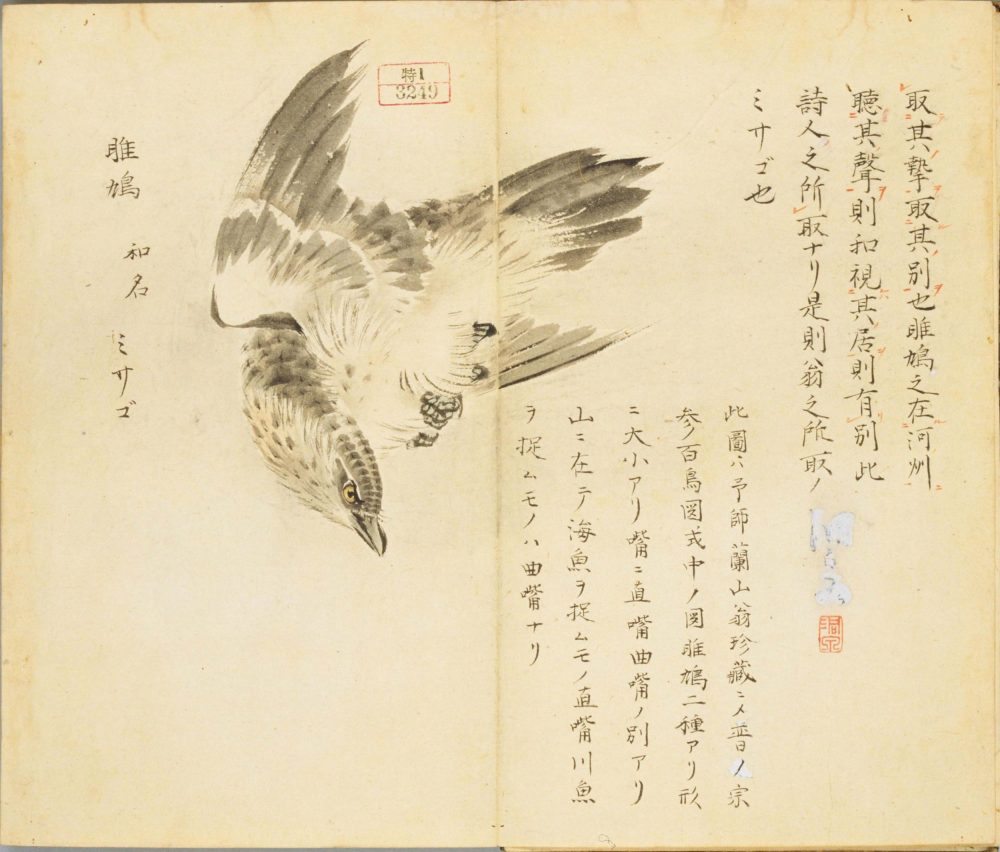 取其摯取其別也雎鳩之在河州
聴其聲則和視其居則有別此
詩人之所取ナリ是則翁之所取ノ
ミサゴ也
此圖ハ予師蘭山翁珍藏ニメ晋ノ宗
参ノ百鳥図式中ノ図雎鳩二種アリ形
ニ大小アリ嘴ニ直嘴曲嘴ノ別アリ
山ニ在テ海魚ヲ捉ムモノ直嘴川魚
ヲ捉ムモノハ曲嘴ナリ
特1
3249
雎鳩 和名 ミサゴ